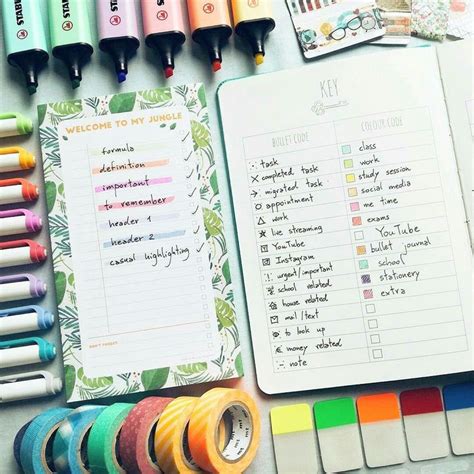 WELCOME TO MY JUNGLE
formula
definition
important
to remember
header 1
header 2
casual highlighting
KEY
BULLET CODE
task
completed task
migrated task
appointment
work
live streaming
YouTube
Instagram
urgent/important
school related
house related
mail/text
to look up
money related
note
COLOUR CODE
class
work
study session
social media
me time
exams
YouTube
bullet journal
school
stationery
extra
mt